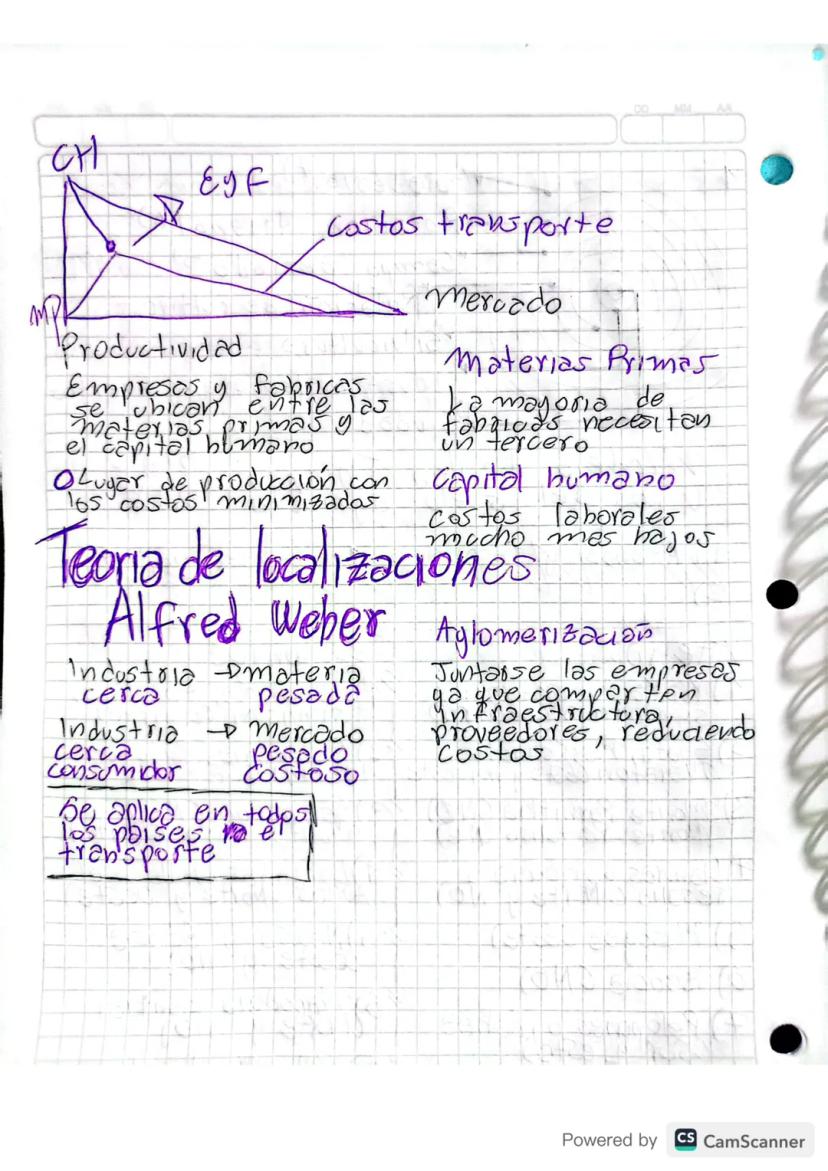 DD MM AA
CH
E y F
Costos transporte
MP
Mercado
Productividad
Empresas y fabricas
se ubican entre las
materias primas y
el capital humano
O Lugar de producción con
los costos minimizados
Materias Primas
La mayoria de
fabricas necesitan
un tercero
Capital humano
costos laborales
mucho mes bajos
Teoria de localizaciones
Alfred Weber
Industria → materia
cerca pesada
Industria → Mercado
cerca pesado
consumidor costoso
Se aplica en todos
los paises no el
transporte
Aglomerización
Juntarse las empresas
ya que comparten
infraestructura,
proveedores, reduciendo
costos
Powered by CS CamScanner